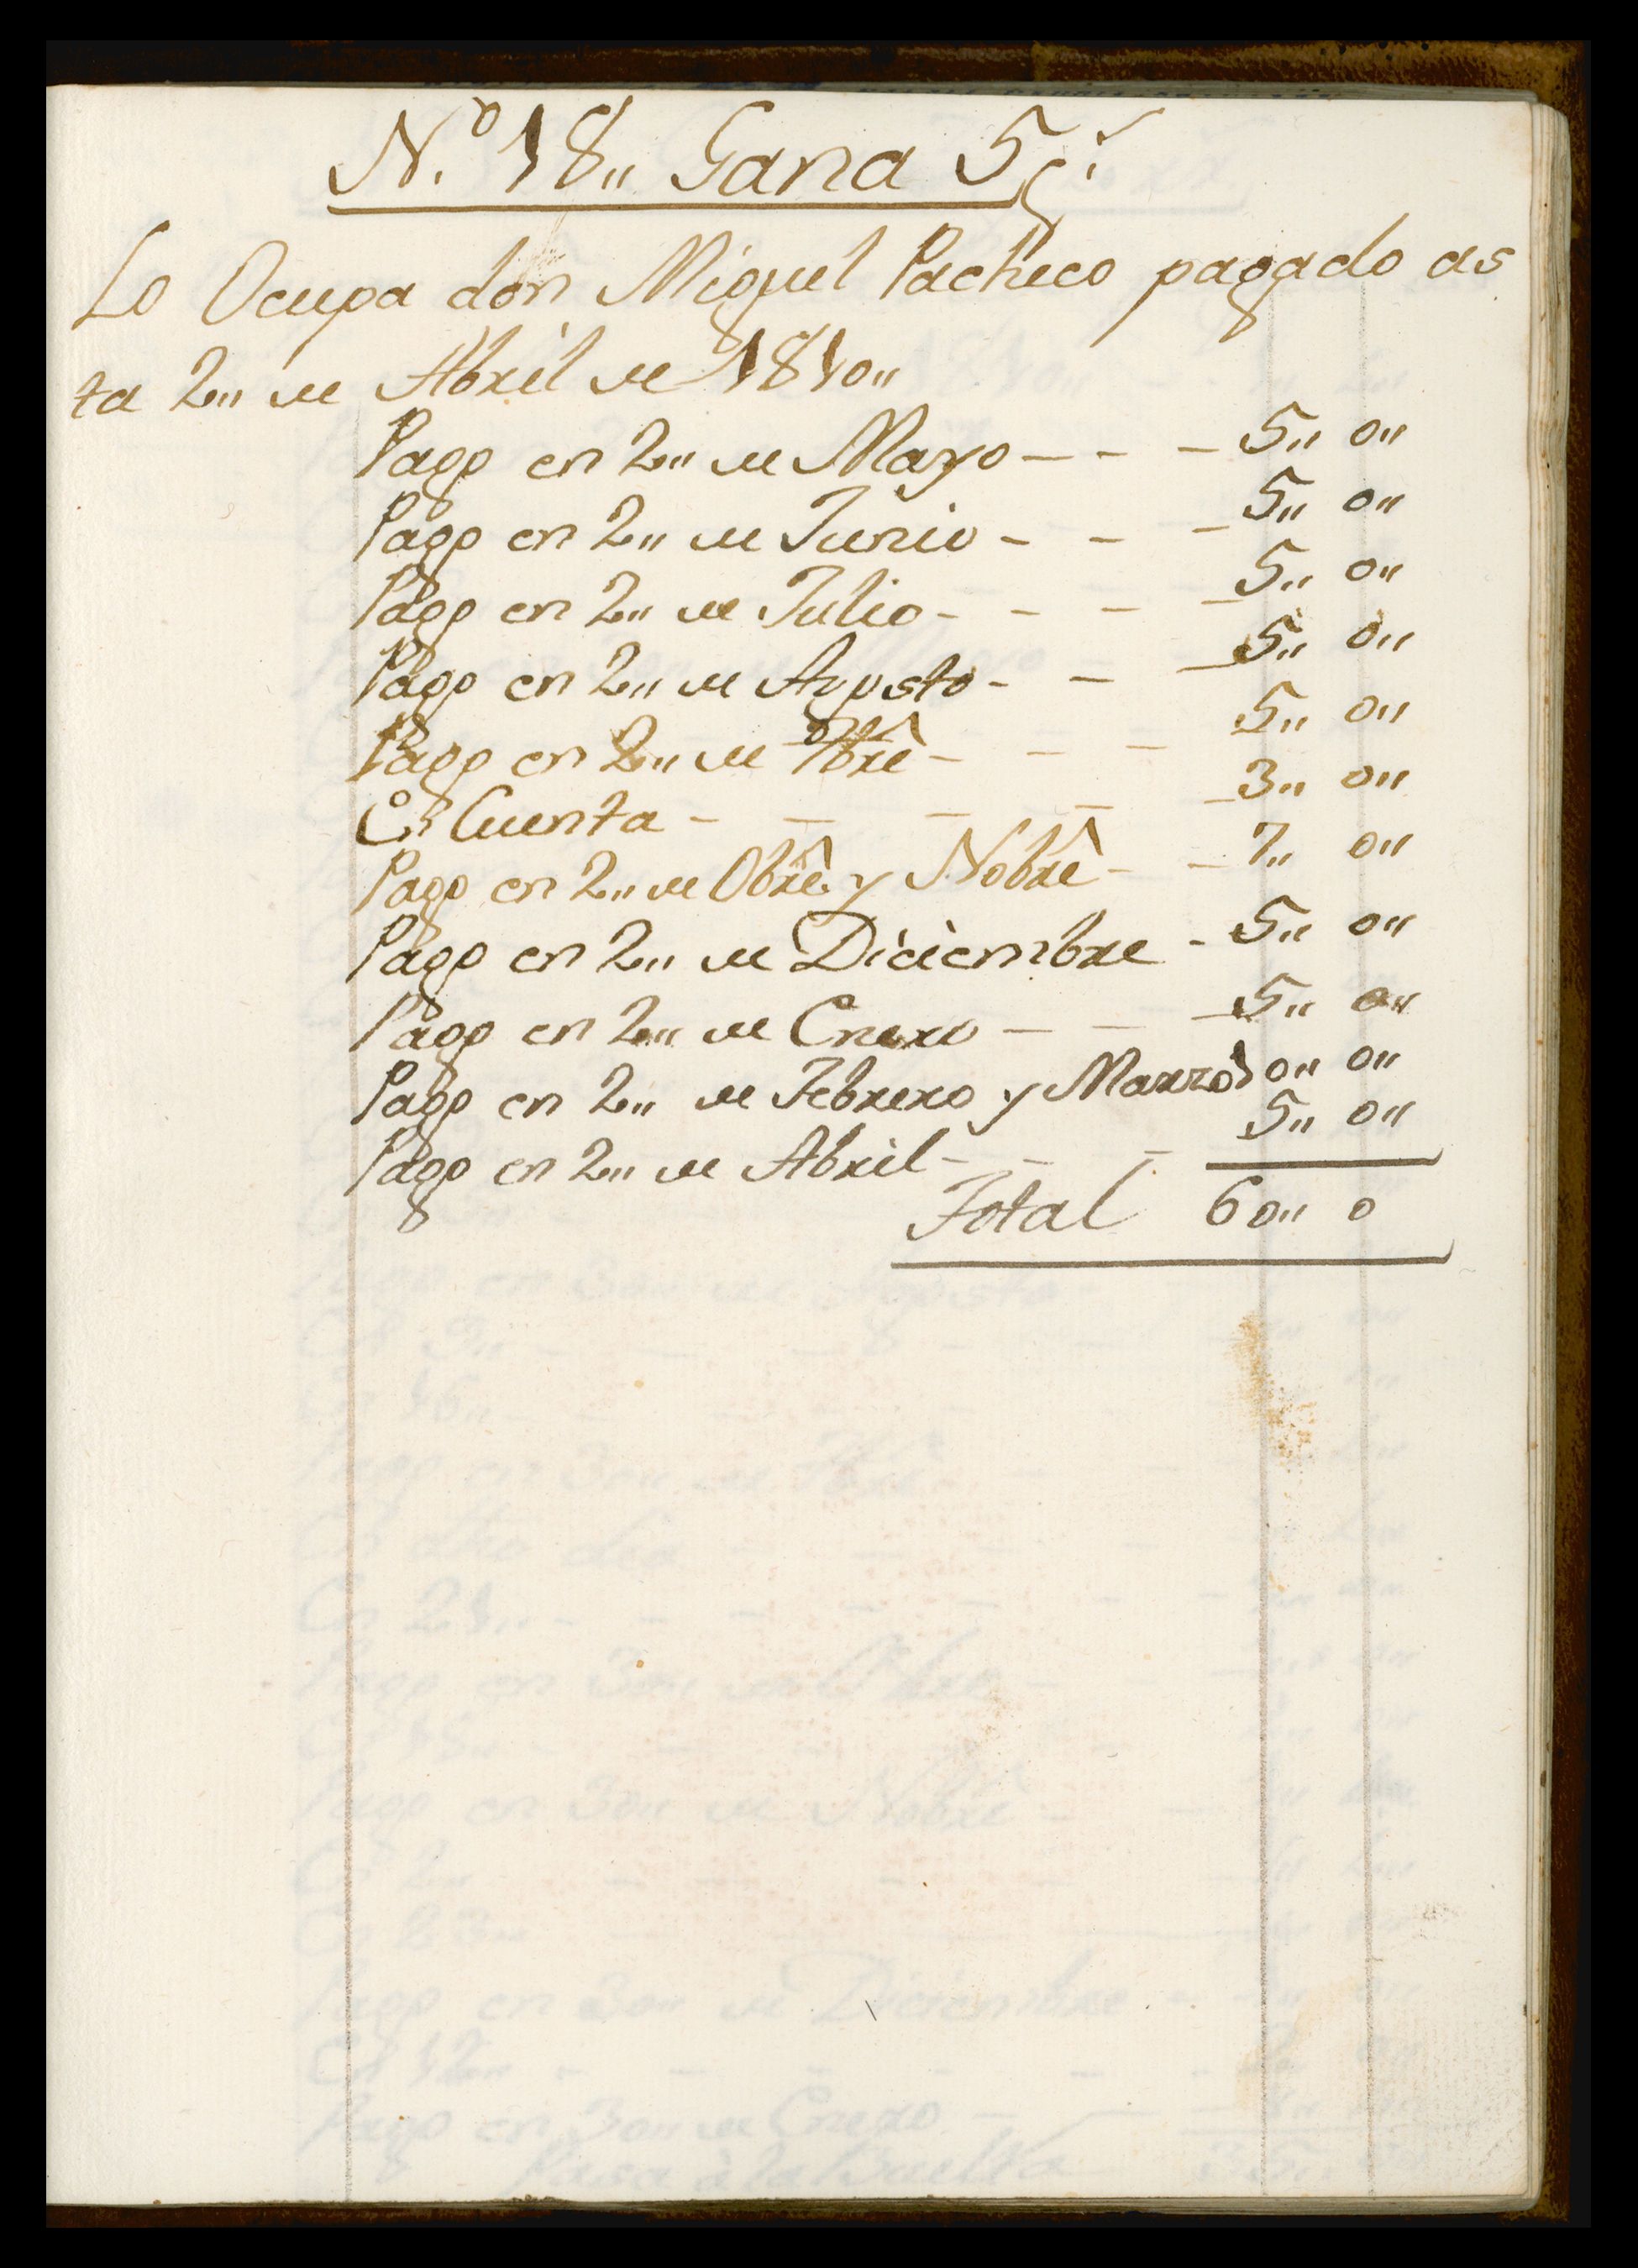 N.º 18,, Gana 5 p.s
Lo Ocupa don Miguel Pacheco pagado as
ta 2,, de Abril de 1810,,
Pago en 2,, de Mayo - - - 5,, 0,,
Pago en 2,, de Junio - - - 5,, 0,,
Pago en 2,, de Julio - - - - 5,, 0,,
Pago en 2,, de Agosto - - - 5,, 0,,
Pago en 2,, de 7bre - - - 5,, 0,,
En Cuenta - - - - - 3,, 0,,
Pago en 2,, de Obre y Nobre - - 7,, 0,,
Pago en 2,, de Diciembre - 5,, 0,,
Pago en 2,, de Enero - - - 5,, 0,,
Pago en 2,, de Febrero y Marzo 10,, 0,,
Pago en 2,, de Abril - - - 5,, 0,,
Total 60,, 0